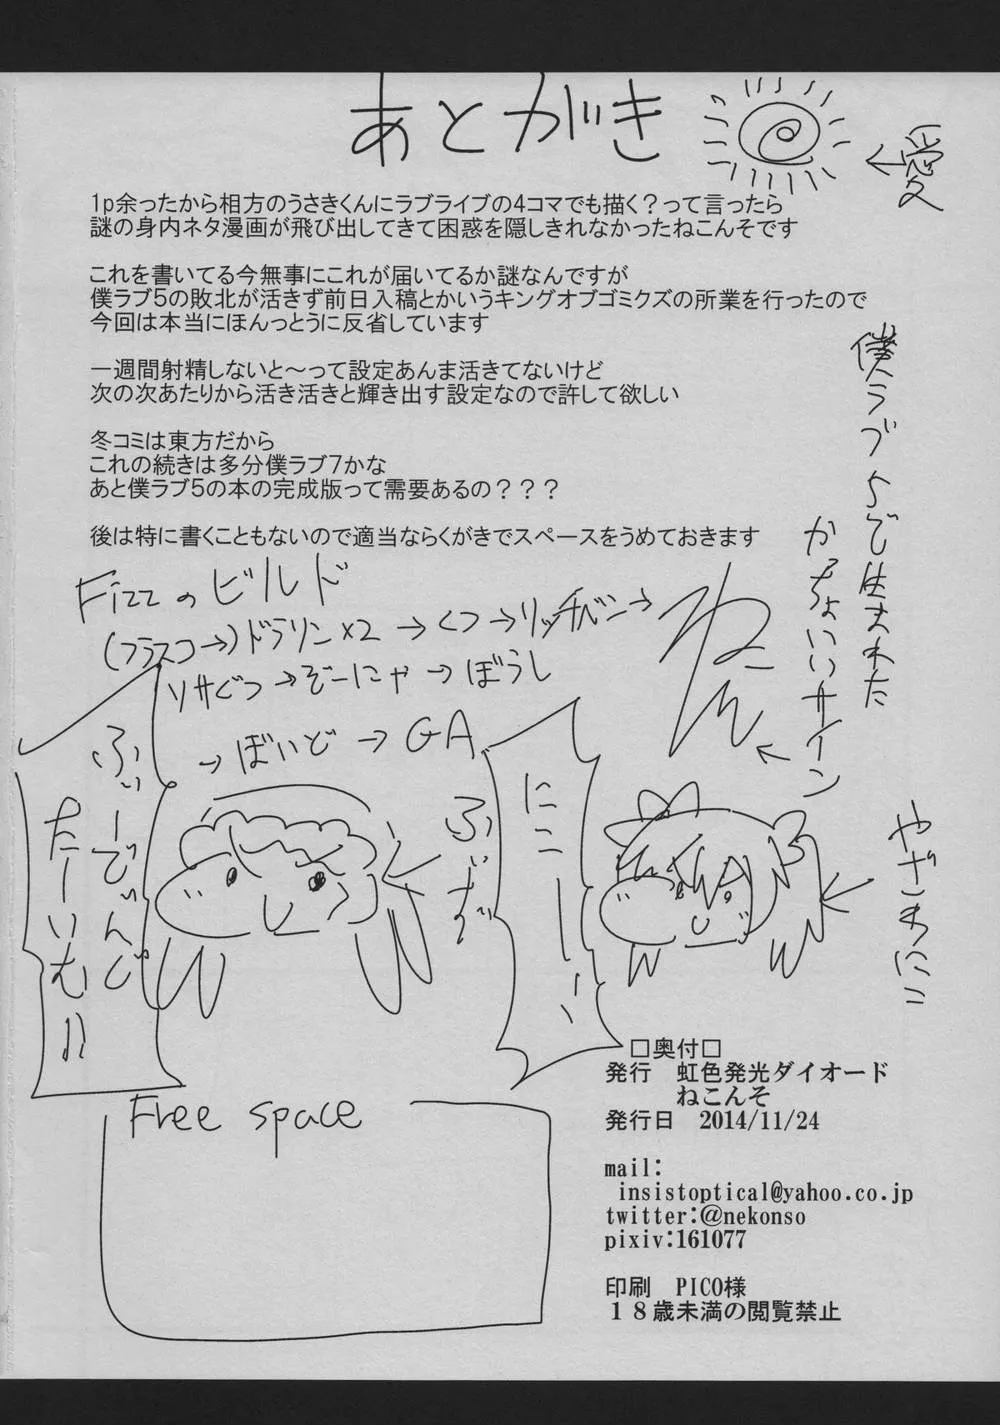 あとがき
愛
1p余ったから相方のうさきくんにラブライブの4コマでも描く？って言ったら
謎の身内ネタ漫画が飛び出してきて困惑を隠しきれなかったねこんそです
これを書いてる今無事にこれが届いてるか謎なんですが
僕ラブ5の敗北が活きず前日入稿とかいうキングオブゴミクズの所業を行ったので
今回は本当にほんっとうに反省しています
一週間射精しないと～って設定あんま活きてないけど
次の次あたりから活き活きと輝き出す設定なので許して欲しい
冬コミは東方だから
これの続きは多分僕ラブ7かな
あと僕ラブ5の本の完成版って需要あるの？？？
後は特に書くこともないので適当ならくがきでスペースをうめておきます
僕ラブ5で生まれた
かっちょいいサイン
Fizzのビルド
(フラスコ→)ドラリン×2→くつ→リッチベン→
リサぐつ→ぞーにゃ→ぼうし
→ぼいど→GA
ねん
ふぃーでぃんど
たーいむ!!
ふぃず
にこーーー
やざわにこ
Free space
□奥付□
発行　虹色発光ダイオード
ねこんそ
発行日　2014/11/24
mail:
insistoptical@yahoo.co.jp
twitter:@nekonso
pixiv:161077
印刷　PICO様
１８歳未満の閲覧禁止